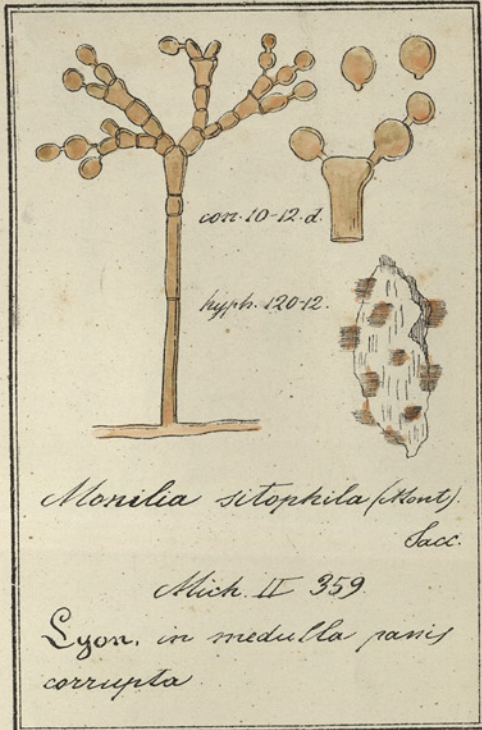 con. 10-12. d.
hyph. 120-12.
Monilia sitophila (Mont).
Sacc.
Mich. II 359.
Lyon. in medulla panis
corrupta